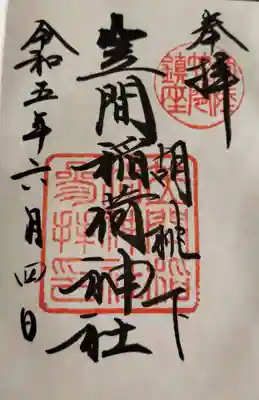 奉拝
胡桃下
笠間稲荷神社
令和五年六月四日